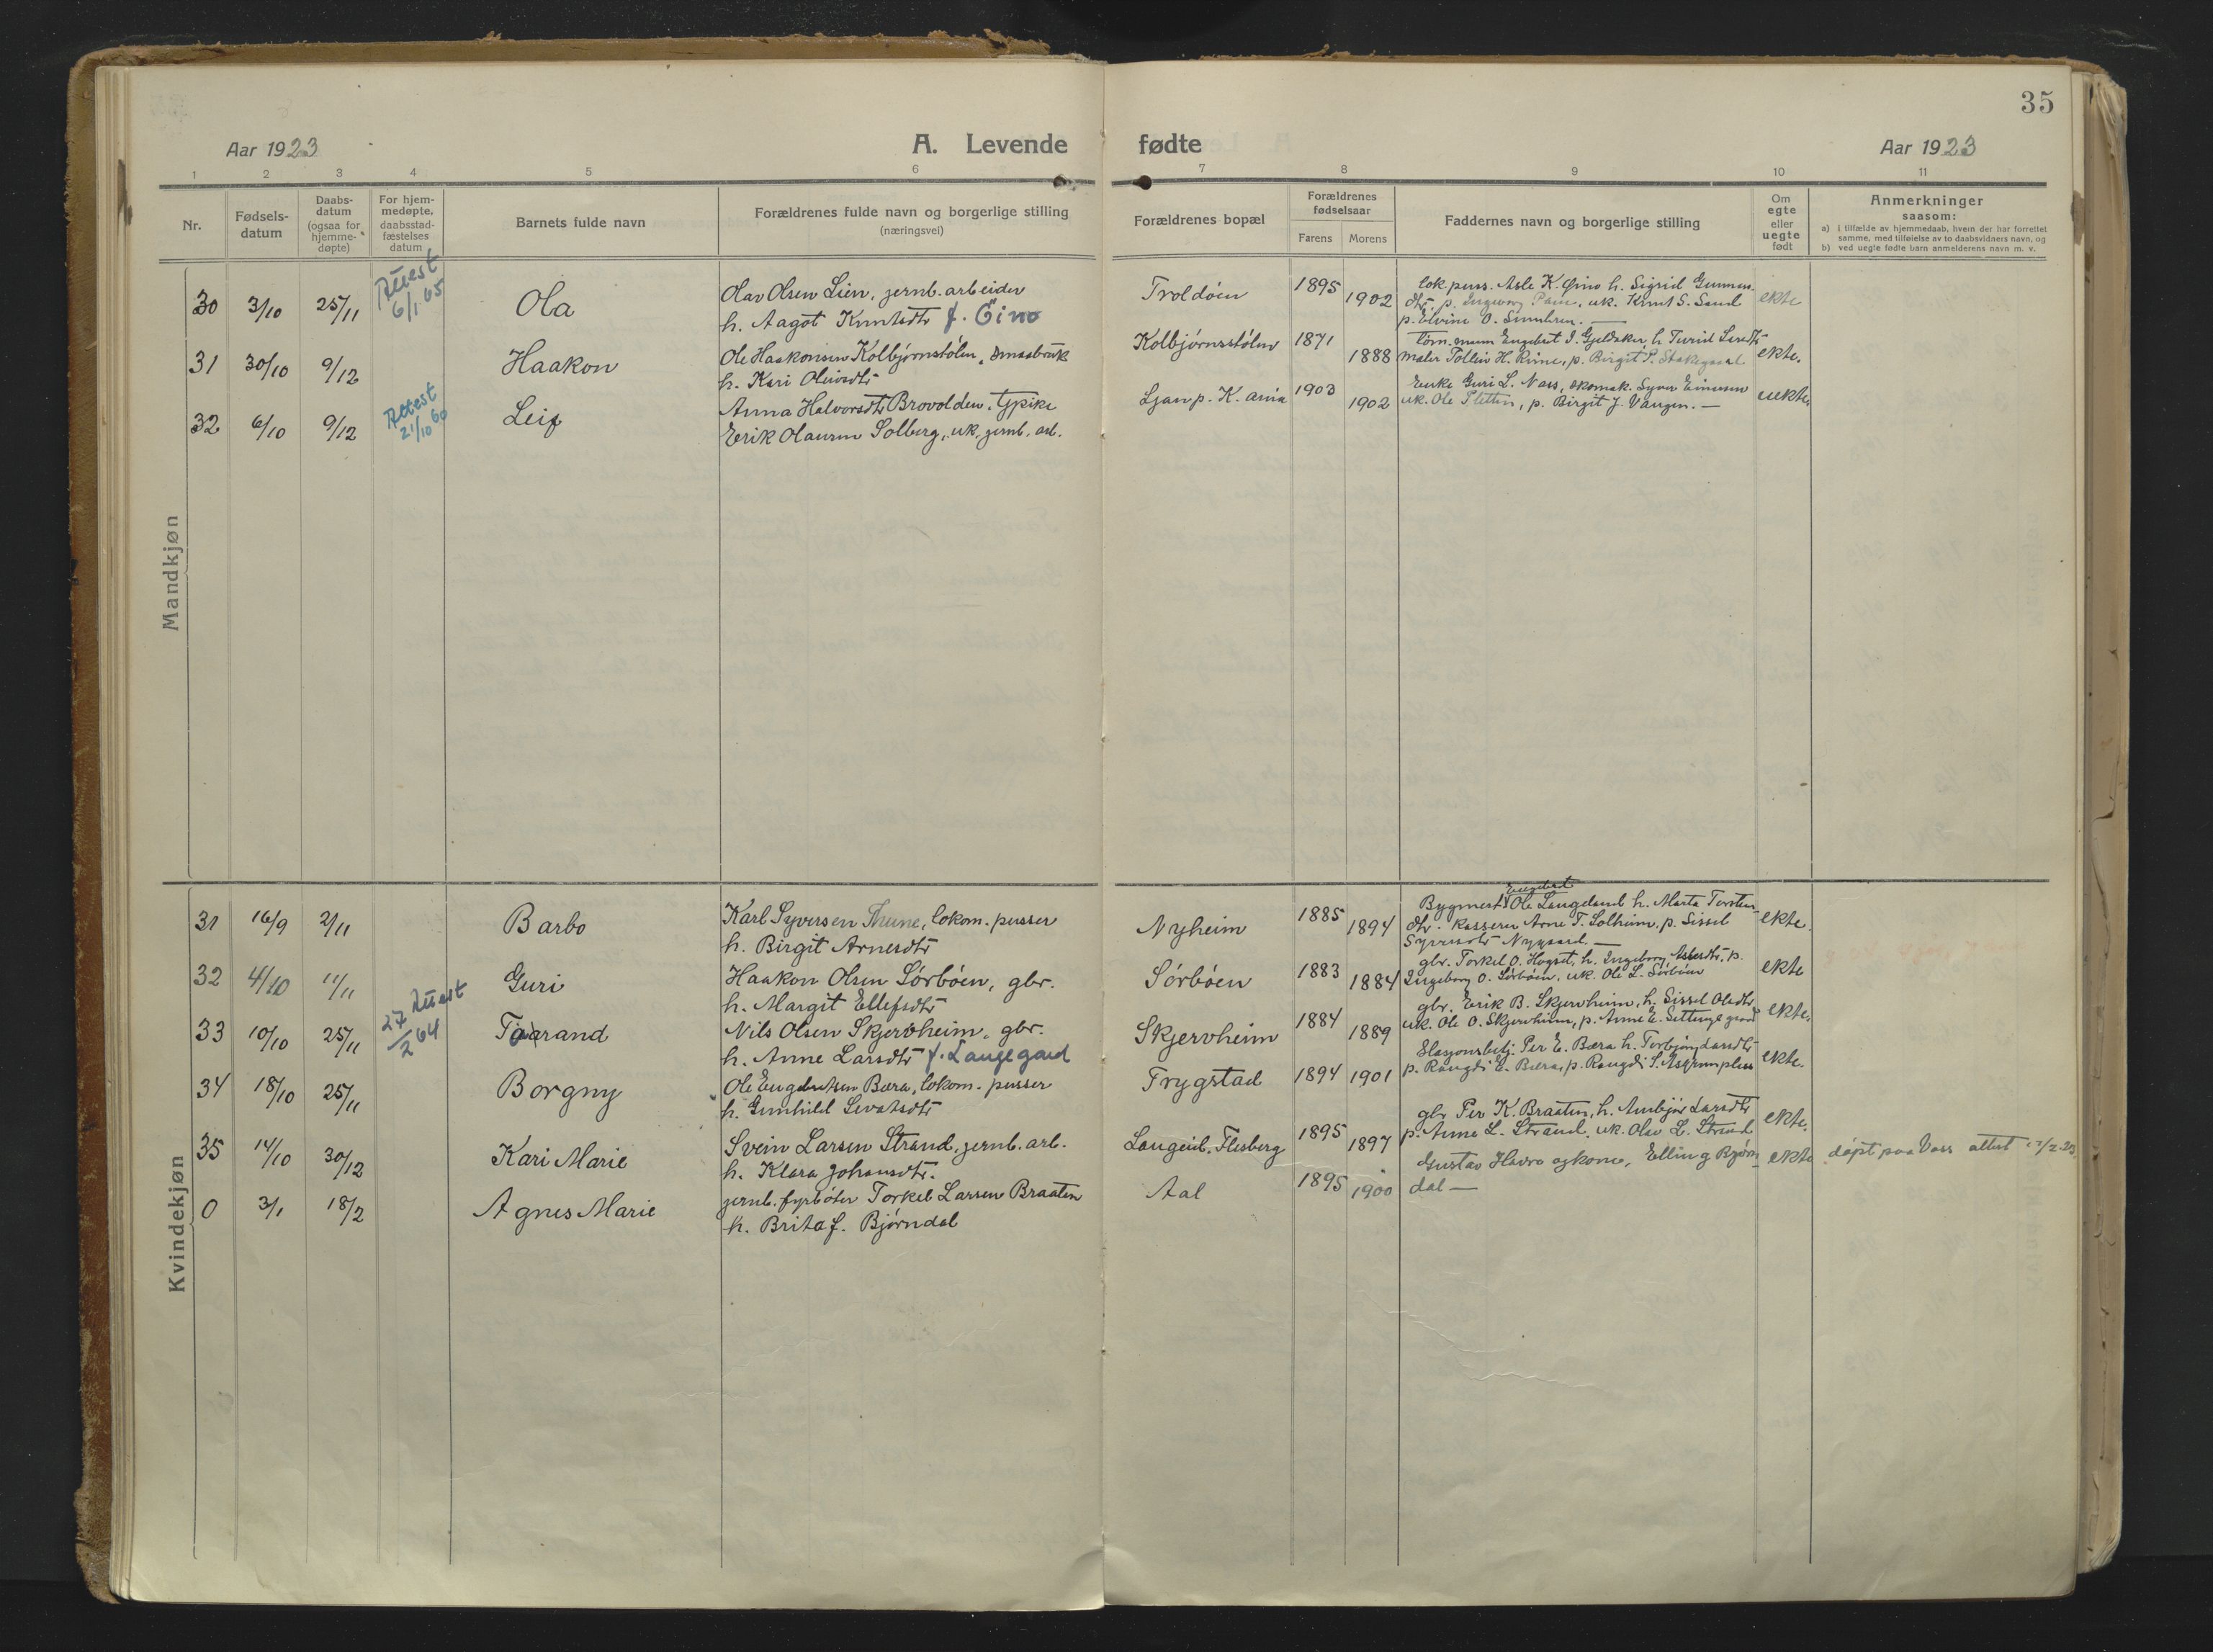 35
Aar 1923
A. Levende fødte
Aar 1923
1 2 3 4 5 6 7 8 9 10 11
Nr.
Fødsels-
datum
Daabs-
datum
(ogsaa for
hjemme-
døpte)
For hjem-
medøpte,
daabsstad-
fæstelses
datum
Barnets fulde navn
Forældrenes fulde navn og borgerlige stilling
(næringsvei)
Forældrenes bopæl
Forældrenes
fødselsaar
Farens Morens
Faddernes navn og borgerlige stilling
Om
egte
eller
uegte
født
Anmerkninger
saasom:
a) i tilfælde av hjemmedaab, hvem der har forrettet
samme, med tilføielse av to daabsvidners navn, og
b) ved uegte fødte barn anmelderens navn m. v.
Mandkjøn
30 3/10 25/11
Attest
6/1 65
Ola
Olav Olsen Lien, jernb. arbeider
h. Aagot Knutsdtr f. Öino
Troldöen
1895 1902
lok. puss. Asle K. Øino h. Sigrid Gunnens
dtr, p. Ingeborg, uk. Knut S. Sand
p. Elvine O.
ekte
31 30/10 9/12
Haakon
Ole Haakonsen Kolbjørnstölen, smaabruk
h. Kari Oleivsdtr
Kolbjørnsstölen
1871 1888
Engebret I. Gjeldaker, h. Turid
maler Tollew H. Rime, p. Birgit P. Stakegaard
ekte.
32 6/10 9/12
Attest
21/10 60
Leif
Anna Halvorsdtr Brovolden, tjpike
Erik Olausen Solberg, uk. jernb. arb.
Ljan p. K.ania
1903 1902
Enke Guri L. Næss, skomak. Syver Einersen
uk. Ole Pletten, p. Birgit J. Vangen. —
uekte
Kvindekjøn
31 16/9 2/11
Barbo
Karl Syversen Thune, lokom. pusser
h. Birgit Arnesdtr
Nyheim
1885 1894
Engebret
Bygmest. Ole Langeland h. Marta Torsten-
dtr. kasserer Arne T. Solheim, p. Sissel
Syversdtr Nygaard. —
ekte.
32 4/10 11/11
Guri
Haakon Olsen Sörböen, gbr.
h. Margit Ellefsdtr
Sörböen
1883 1884
gbr. Torkel O. Hogset, h. Ingeborg Aslesdtr, p.
Ingeborg O. Sörböen, uk. Ole L. Sörböen
ekte
33 10/10 25/11
Attest
27/2 64
Torand
Nils Olsen Skjervheim, gbr.
h. Anne Larsdtr f. Langegard
Skjervheim
1884 1889
gbr. Erik B. Skjervheim, h. Sissel Olsdtr
uk. Ole O. Skjervheim, p. Anne E.
ekte.
34 18/10 25/11
Borgny
Ole Engebretsen Bæra, lokom. pusser
h. Gunhild Sevatsdtr
Trygstad
1894 1901
Stasjonsbetj. Per E. Bæra h. Torbjørg Larsdtr
p. Rangdi E. Bæra, p. Rangdi S.
ekte.
35 14/10 30/12
Kari Marie
Svein Larsen Strand, jernb. arb.
h. Klara Johansdtr.
Langeid, Flesberg
1895 1897
gbr Per K. Braaten, h. Ambjør Larsdtr
p. Anne L. Strand, uk. Olav L. Strand
ekte.
0 3/1 18/2
Agnes Marie
jernb. fyrböter Torkel Larsen Braaten
h. Brita f. Bjørndal
Aal
1895 1900
Gustav Havro og kone, Elling Bjørn-
dal —
ekte
döpt paa Voss attest